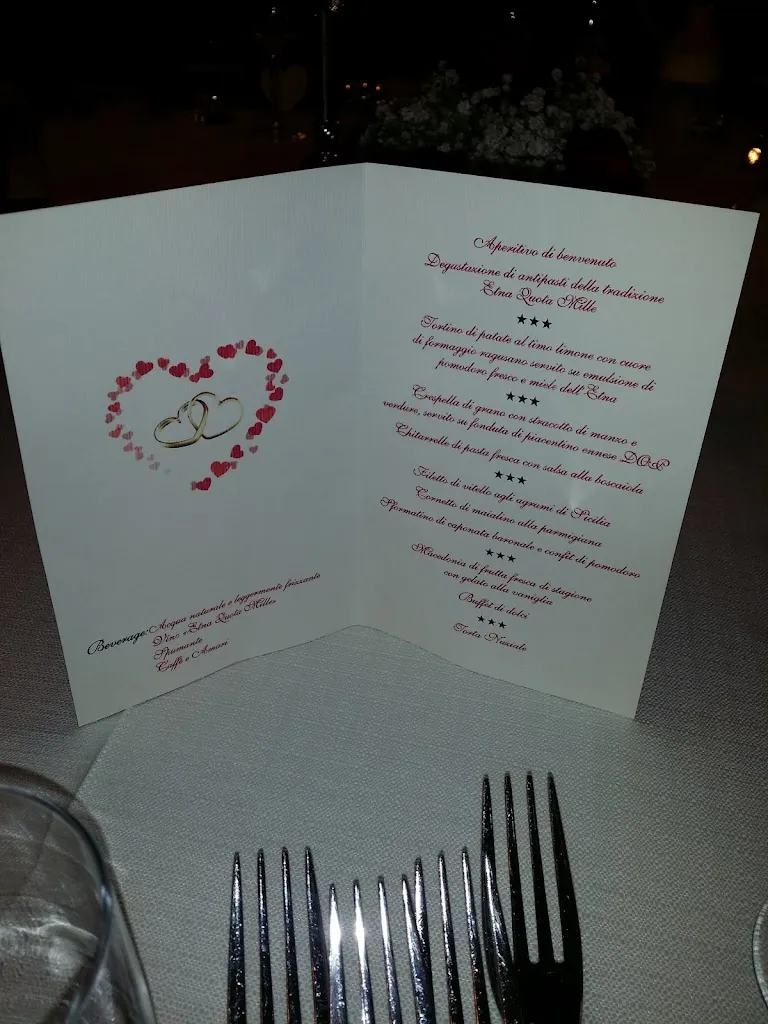 Beverage: Acqua naturale e leggermente frizzante
Vino «Etna Quota Mille»
Spumante
Caffè e Amari
Aperitivo di benvenuto
Degustazione di antipasti della tradizione
Etna Quota Mille
★★★
Tortino di patate al timo limone con cuore
di formaggio ragusano servito su emulsione di
pomodoro fresco e miele dell'Etna
★★★
Crespella di grano con stracotto di manzo e
verdure, servito su fonduta di piacentino ennese DOP
Chitarrelle di pasta fresca con salsa alla boscaiola
★★★
Filetto di vitello agli agrumi di Sicilia
Cornetto di maialino alla parmigiana
Sformatino di caponata baronale e confit di pomodoro
★★★
Macedonia di frutta fresca di stagione
con gelato alla vaniglia
Buffet di dolci
★★★
Torta Nuziale